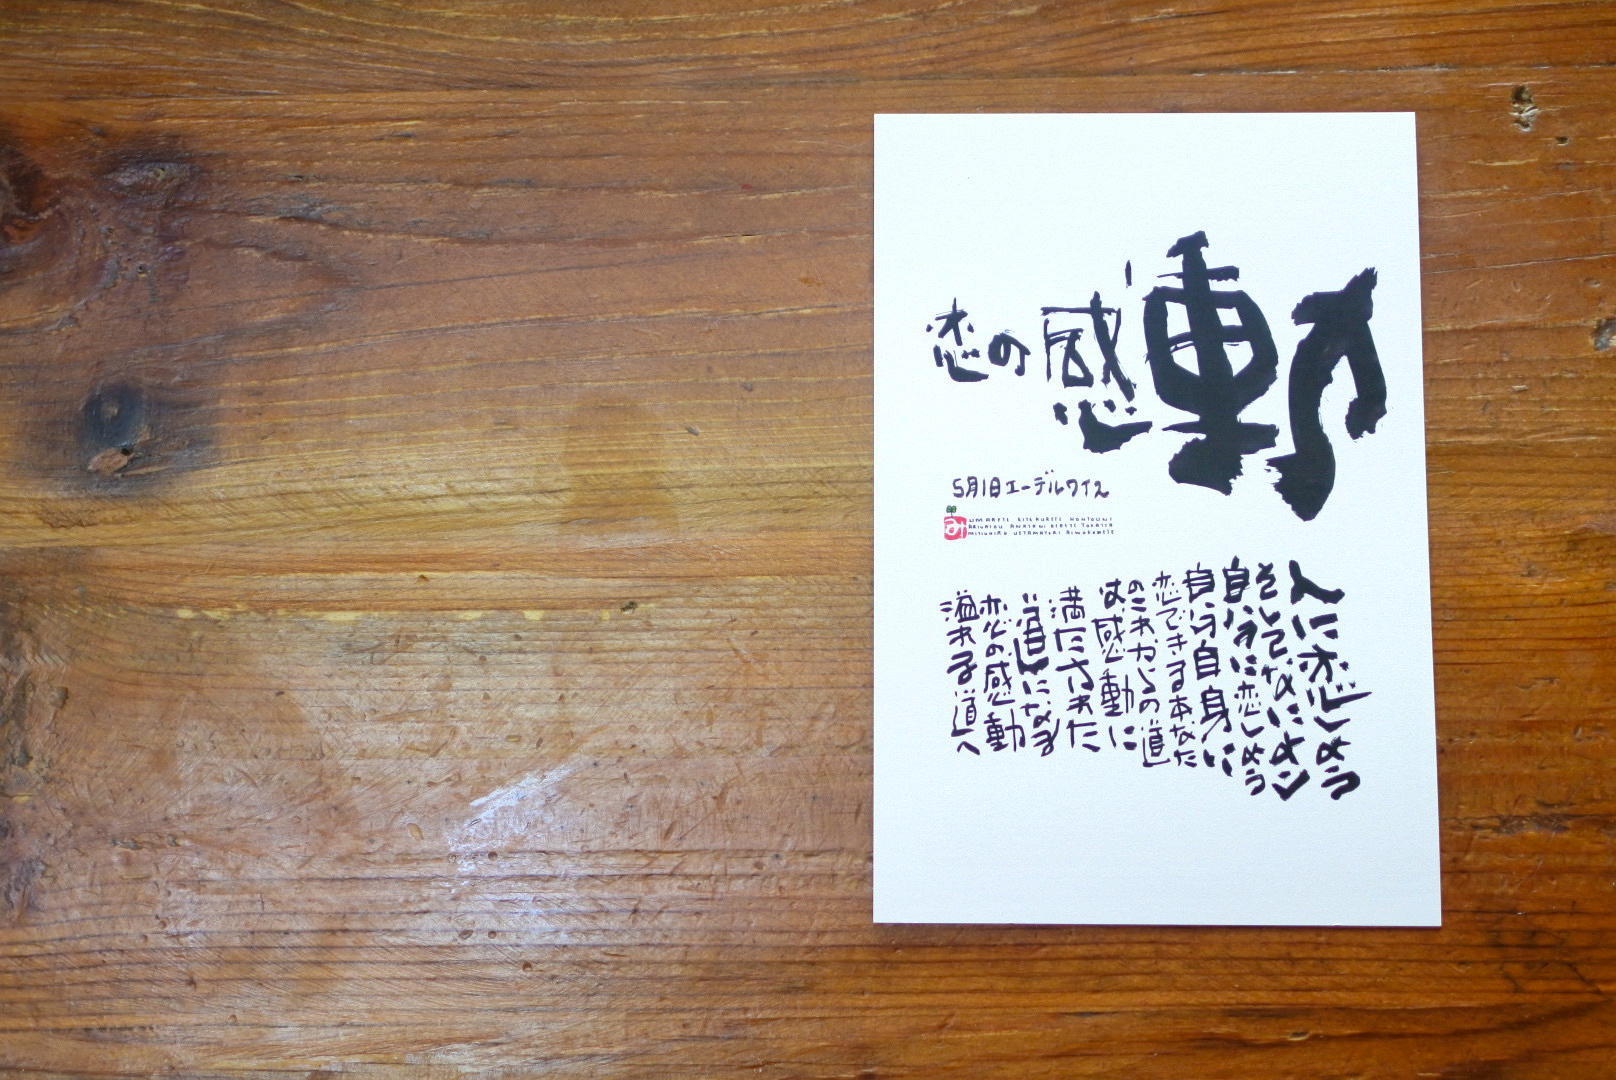 恋の感動
5月1日エーデルワイス
み
UMARETE KITEKURETE HONTOUNI
ARIGATOU ANATANI DEAETE YOKATTA
人に恋しよう
そしてなによりン
自分に恋しよう
自分自身に
恋できるあなた
のこれからの道
は感動に
満たされた
道になる
恋の感動
溢れる道へ